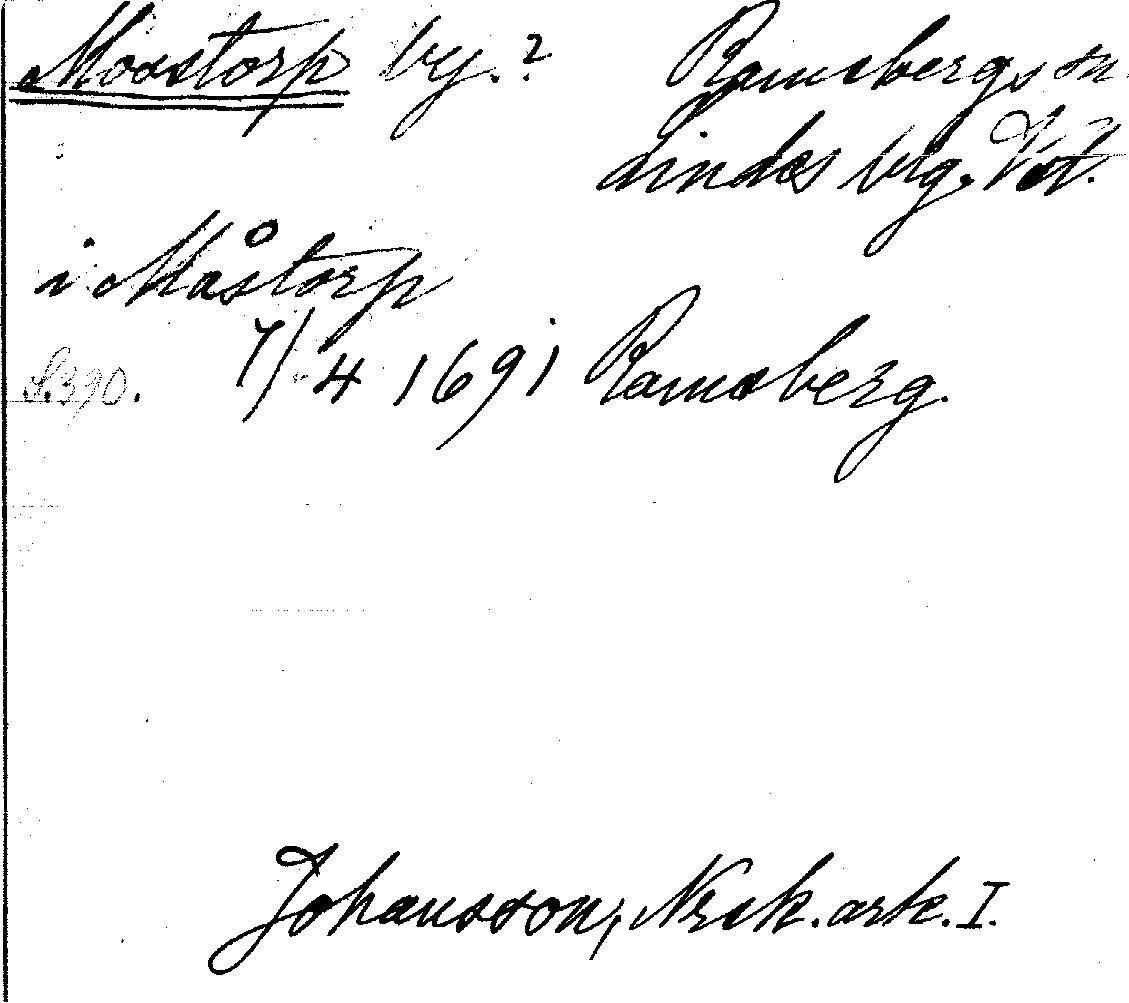 Moastorp by.? Ramsbergs sn.
Lindes brg. Vst.
i Måstorp
S.390. 7/4 1691 Ramsberg.
Johansson, Nrik. ark. I.